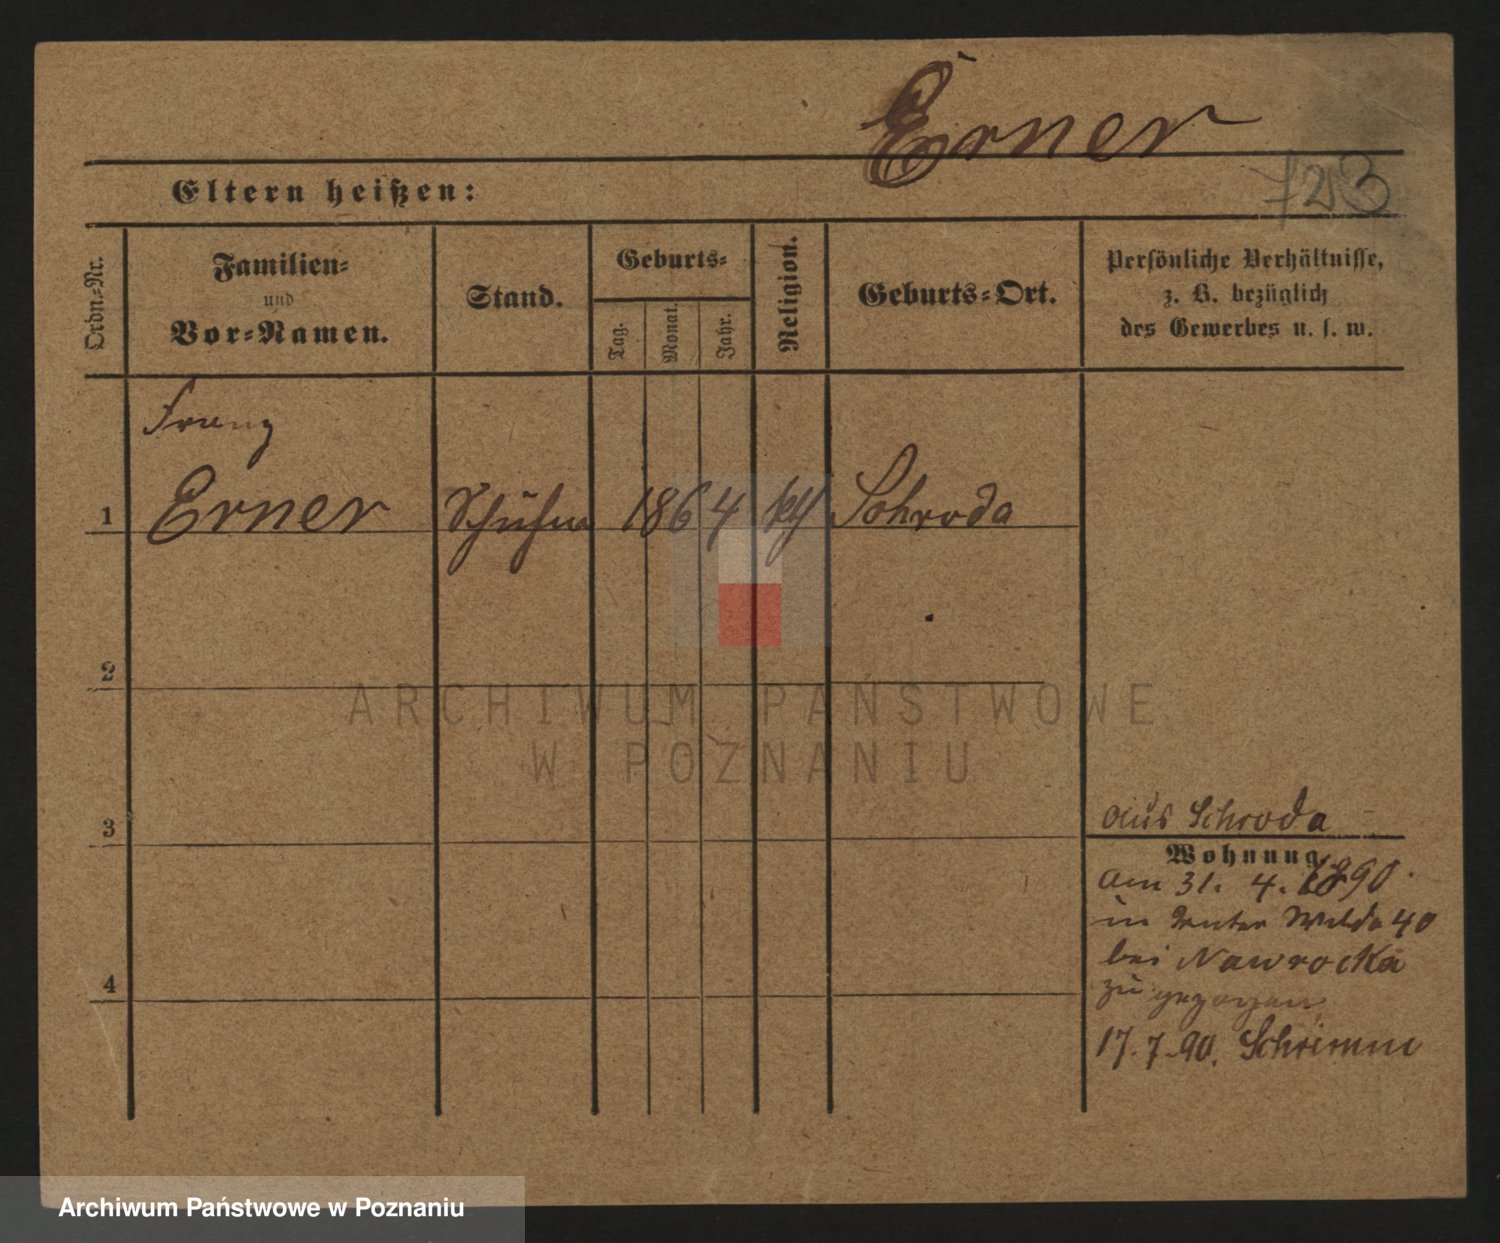 Erner
723
Eltern heißen:
Ordn.-Nr.
Familien-
und
Vor-Namen.
Stand.
Geburts-
Tag.
Monat.
Jahr.
Religion.
Geburts-Ort.
Persönliche Verhältnisse,
z. B. bezüglich
des Gewerbes u. s. w.
Franz
1 Erner Schuhm 1864 kth Schroda
2
3
4
aus Schroda
Wohnung.
am 31. 4. 1890.
in Unter Wilda 40
bei Nawrocka
zugezogen
17.7.90. Schrimm
ARCHIWUM PAŃSTWOWE
W POZNANIU
Archiwum Państwowe w Poznaniu